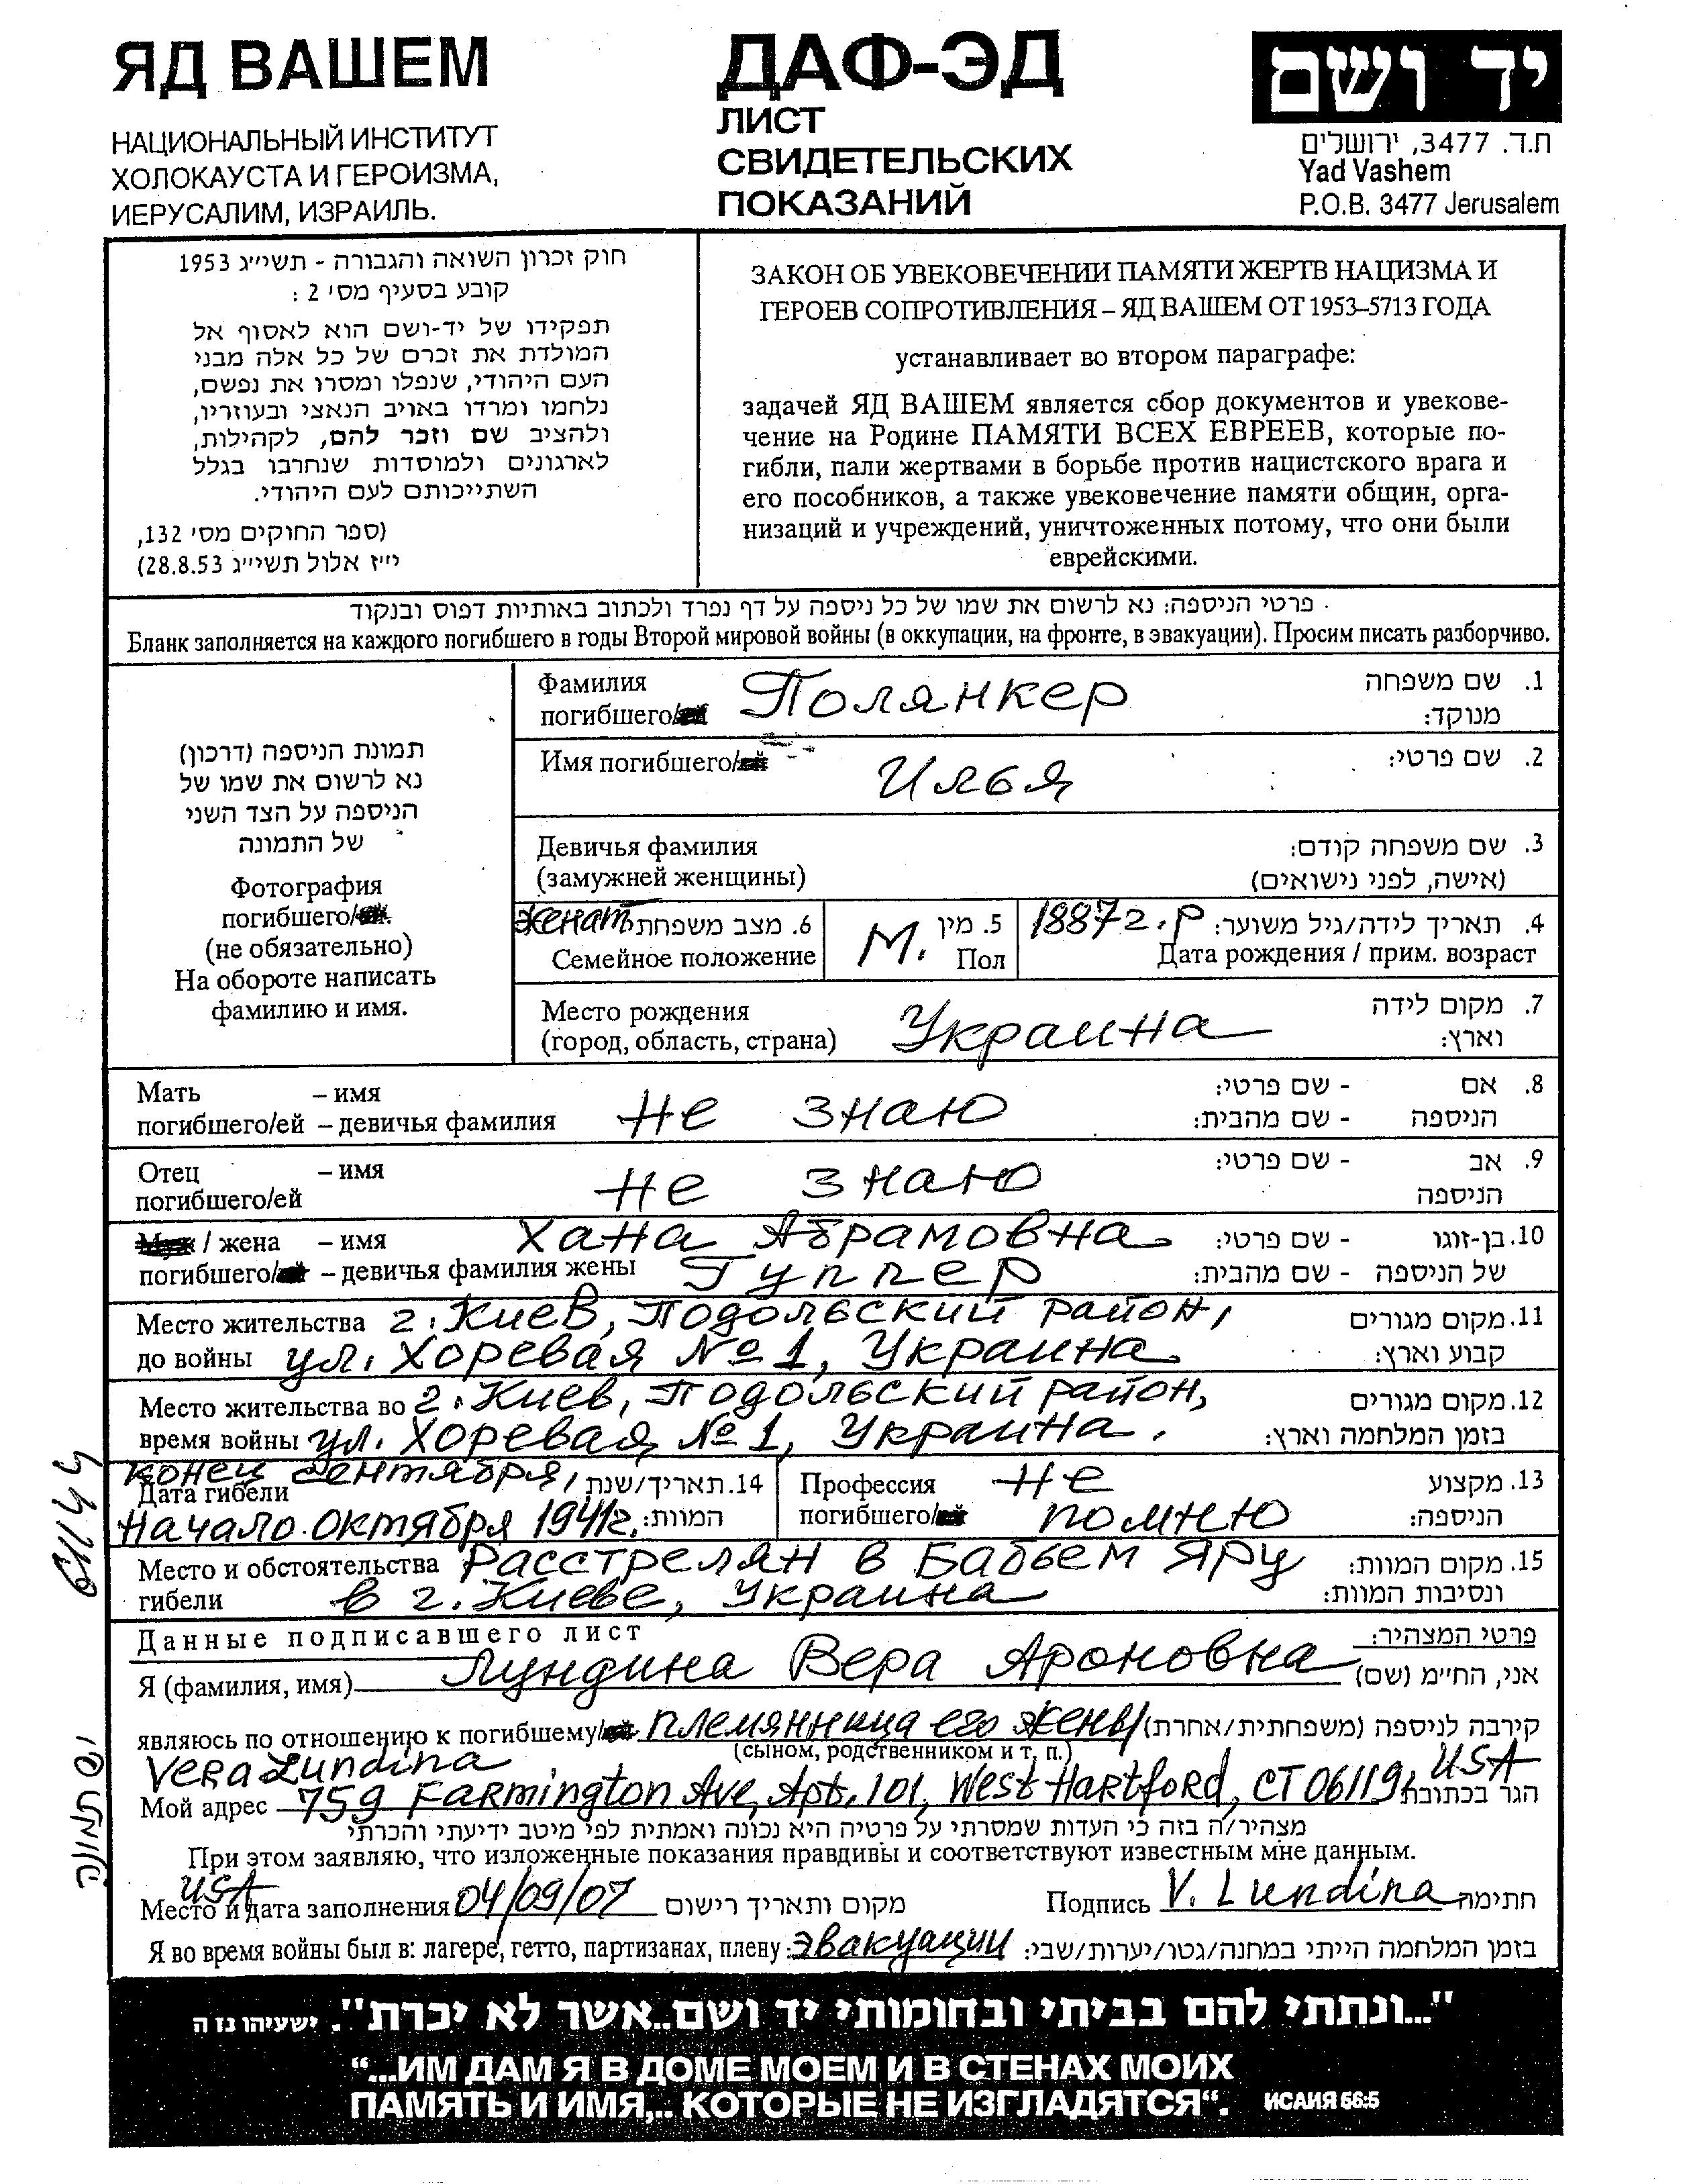 ЯД ВАШЕМ
НАЦИОНАЛЬНЫЙ ИНСТИТУТ
ХОЛОКАУСТА И ГЕРОИЗМА,
ИЕРУСАЛИМ, ИЗРАИЛЬ.
ДАФ-ЭД
ЛИСТ
СВИДЕТЕЛЬСКИХ
ПОКАЗАНИЙ
יד ושם
ת.ד. 3477, ירושלים
Yad Vashem
P.O.B. 3477 Jerusalem
חוק זכרון השואה והגבורה - תשי״ג 1953
קובע בסעיף מס׳ 2 :
תפקידו של יד-ושם הוא לאסוף אל
המולדת את זכרם של כל אלה מבני
העם היהודי, שנפלו ומסרו את נפשם,
נלחמו ומרדו באויב הנאצי ובעוזריו,
ולהציב שם וזכר להם, לקהילות,
לארגונים ולמוסדות שנחרבו בגלל
השתייכותם לעם היהודי.
(ספר החוקים מס׳ 132,
י״ז אלול תשי״ג 28.8.53)
ЗАКОН ОБ УВЕКОВЕЧЕНИИ ПАМЯТИ ЖЕРТВ НАЦИЗМА И
ГЕРОЕВ СОПРОТИВЛЕНИЯ – ЯД ВАШЕМ ОТ 1953–5713 ГОДА
устанавливает во втором параграфе:
задачей ЯД ВАШЕМ является сбор документов и увекове-
чение на Родине ПАМЯТИ ВСЕХ ЕВРЕЕВ, которые по-
гибли, пали жертвами в борьбе против нацистского врага и
его пособников, а также увековечение памяти общин, орга-
низаций и учреждений, уничтоженных потому, что они были
еврейскими.
פרטי הניספה: נא לרשום את שמו של כל ניספה על דף נפרד ולכתוב באותיות דפוס ובנקוד
Бланк заполняется на каждого погибшего в годы Второй мировой войны (в оккупации, на фронте, в эвакуации). Просим писать разборчиво.
תמונת הניספה (דרכון)
נא לרשום את שמו של
הניספה על הצד השני
של התמונה
Фотография
погибшего/
(не обязательно)
На обороте написать
фамилию и имя.
Фамилия
погибшего/ Полянкер
1. שם משפחה
מנוקד:
Имя погибшего/ Илья 2. שם פרטי:
Девичья фамилия
(замужней женщины)
3. שם משפחה קודם:
(אישה, לפני נישואים)
женат 6. מצב משפחתי
Семейное положение
М. 5. מין
Пол
1887г.р 4. תאריך לידה/גיל משוער:
Дата рождения / прим. возраст
Место рождения
(город, область, страна) Украина
7. מקום לידה
וארץ:
Мать – имя
погибшего/ей – девичья фамилия не знаю
8. אם - שם פרטי:
הניספה - שם מהבית:
Отец – имя
погибшего/ей не знаю
9. אב - שם פרטי:
הניספה
/ жена – имя Хана Абрамовна 10. בן-זוגו - שם פרטי:
погибшего/ – девичья фамилия жены Гуппер של הניספה - שם מהבית:
Место жительства г. Киев, Подольский район, 11. מקום מגורים
до войны ул. Хоревая №1, Украина קבוע וארץ:
Место жительства во г. Киев, Подольский район, 12. מקום מגורים
время войны ул. Хоревая №1, Украина. בזמן המלחמה וארץ:
конец сентября,
Дата гибели 14. תאריך/שנת
начало октября 1941г. המוות:
Профессия не 13. מקצוע
погибшего/ помню הניספה:
Место и обстоятельства Расстрелян в Бабьем Яру 15. מקום המוות:
гибели в г. Киеве, Украина ונסיבות המוות:
Данные подписавшего лист פרטי המצהיר:
Я (фамилия, имя) Лундина Вера Ароновна אני, החי״מ (שם)
являюсь по отношению к погибшему/ племянница его жены קירבה לניספה (משפחתית/אחרת)
(сыном, родственником и т. п.)
Vera Lundina
Мой адрес 759 Farmington Ave, Apt. 101, West Hartford, CT 06119, USA הגר בכתובת
מצהיר/ה בזה כי העדות שמסרתי על פרטיה היא נכונה ואמתית לפי מיטב ידיעתי והכרתי
При этом заявляю, что изложенные показания правдивы и соответствуют известным мне данным.
USA
Место и дата заполнения 04/09/07 מקום ותאריך רישום Подпись V. Lundina חתימה
Я во время войны был в: лагере, гетто, партизанах, плену эвакуации בזמן המלחמה הייתי במחנה/גטו/יערות/שבי:
יש תמונה
"...ונתתי להם בביתי ובחומותי יד ושם..אשר לא יכרת". ישעיהו נו ה
“...ИМ ДАМ Я В ДОМЕ МОЕМ И В СТЕНАХ МОИХ
ПАМЯТЬ И ИМЯ,.. КОТОРЫЕ НЕ ИЗГЛАДЯТСЯ“. ИСАИЯ 56:5